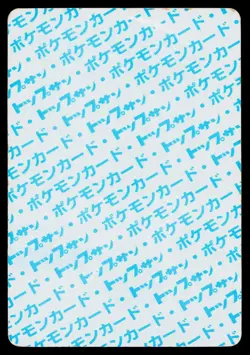 ポケモンカード・
ポケモンカード・トップサン
トップサン・ポケモンカード・
ポケモンカード・トップサン・
トップサン・ポケモンカード・
ポケモンカード・トップサン・
トップサン・ポケモンカード・
ポケモンカード・トップサン・
トップサン・ポケモンカード・
ポケモンカード・トップサン・
トップサン・ポケモンカード
ポケモンカード・トップサン
トップサン・ポケモンカード
ポケモンカード